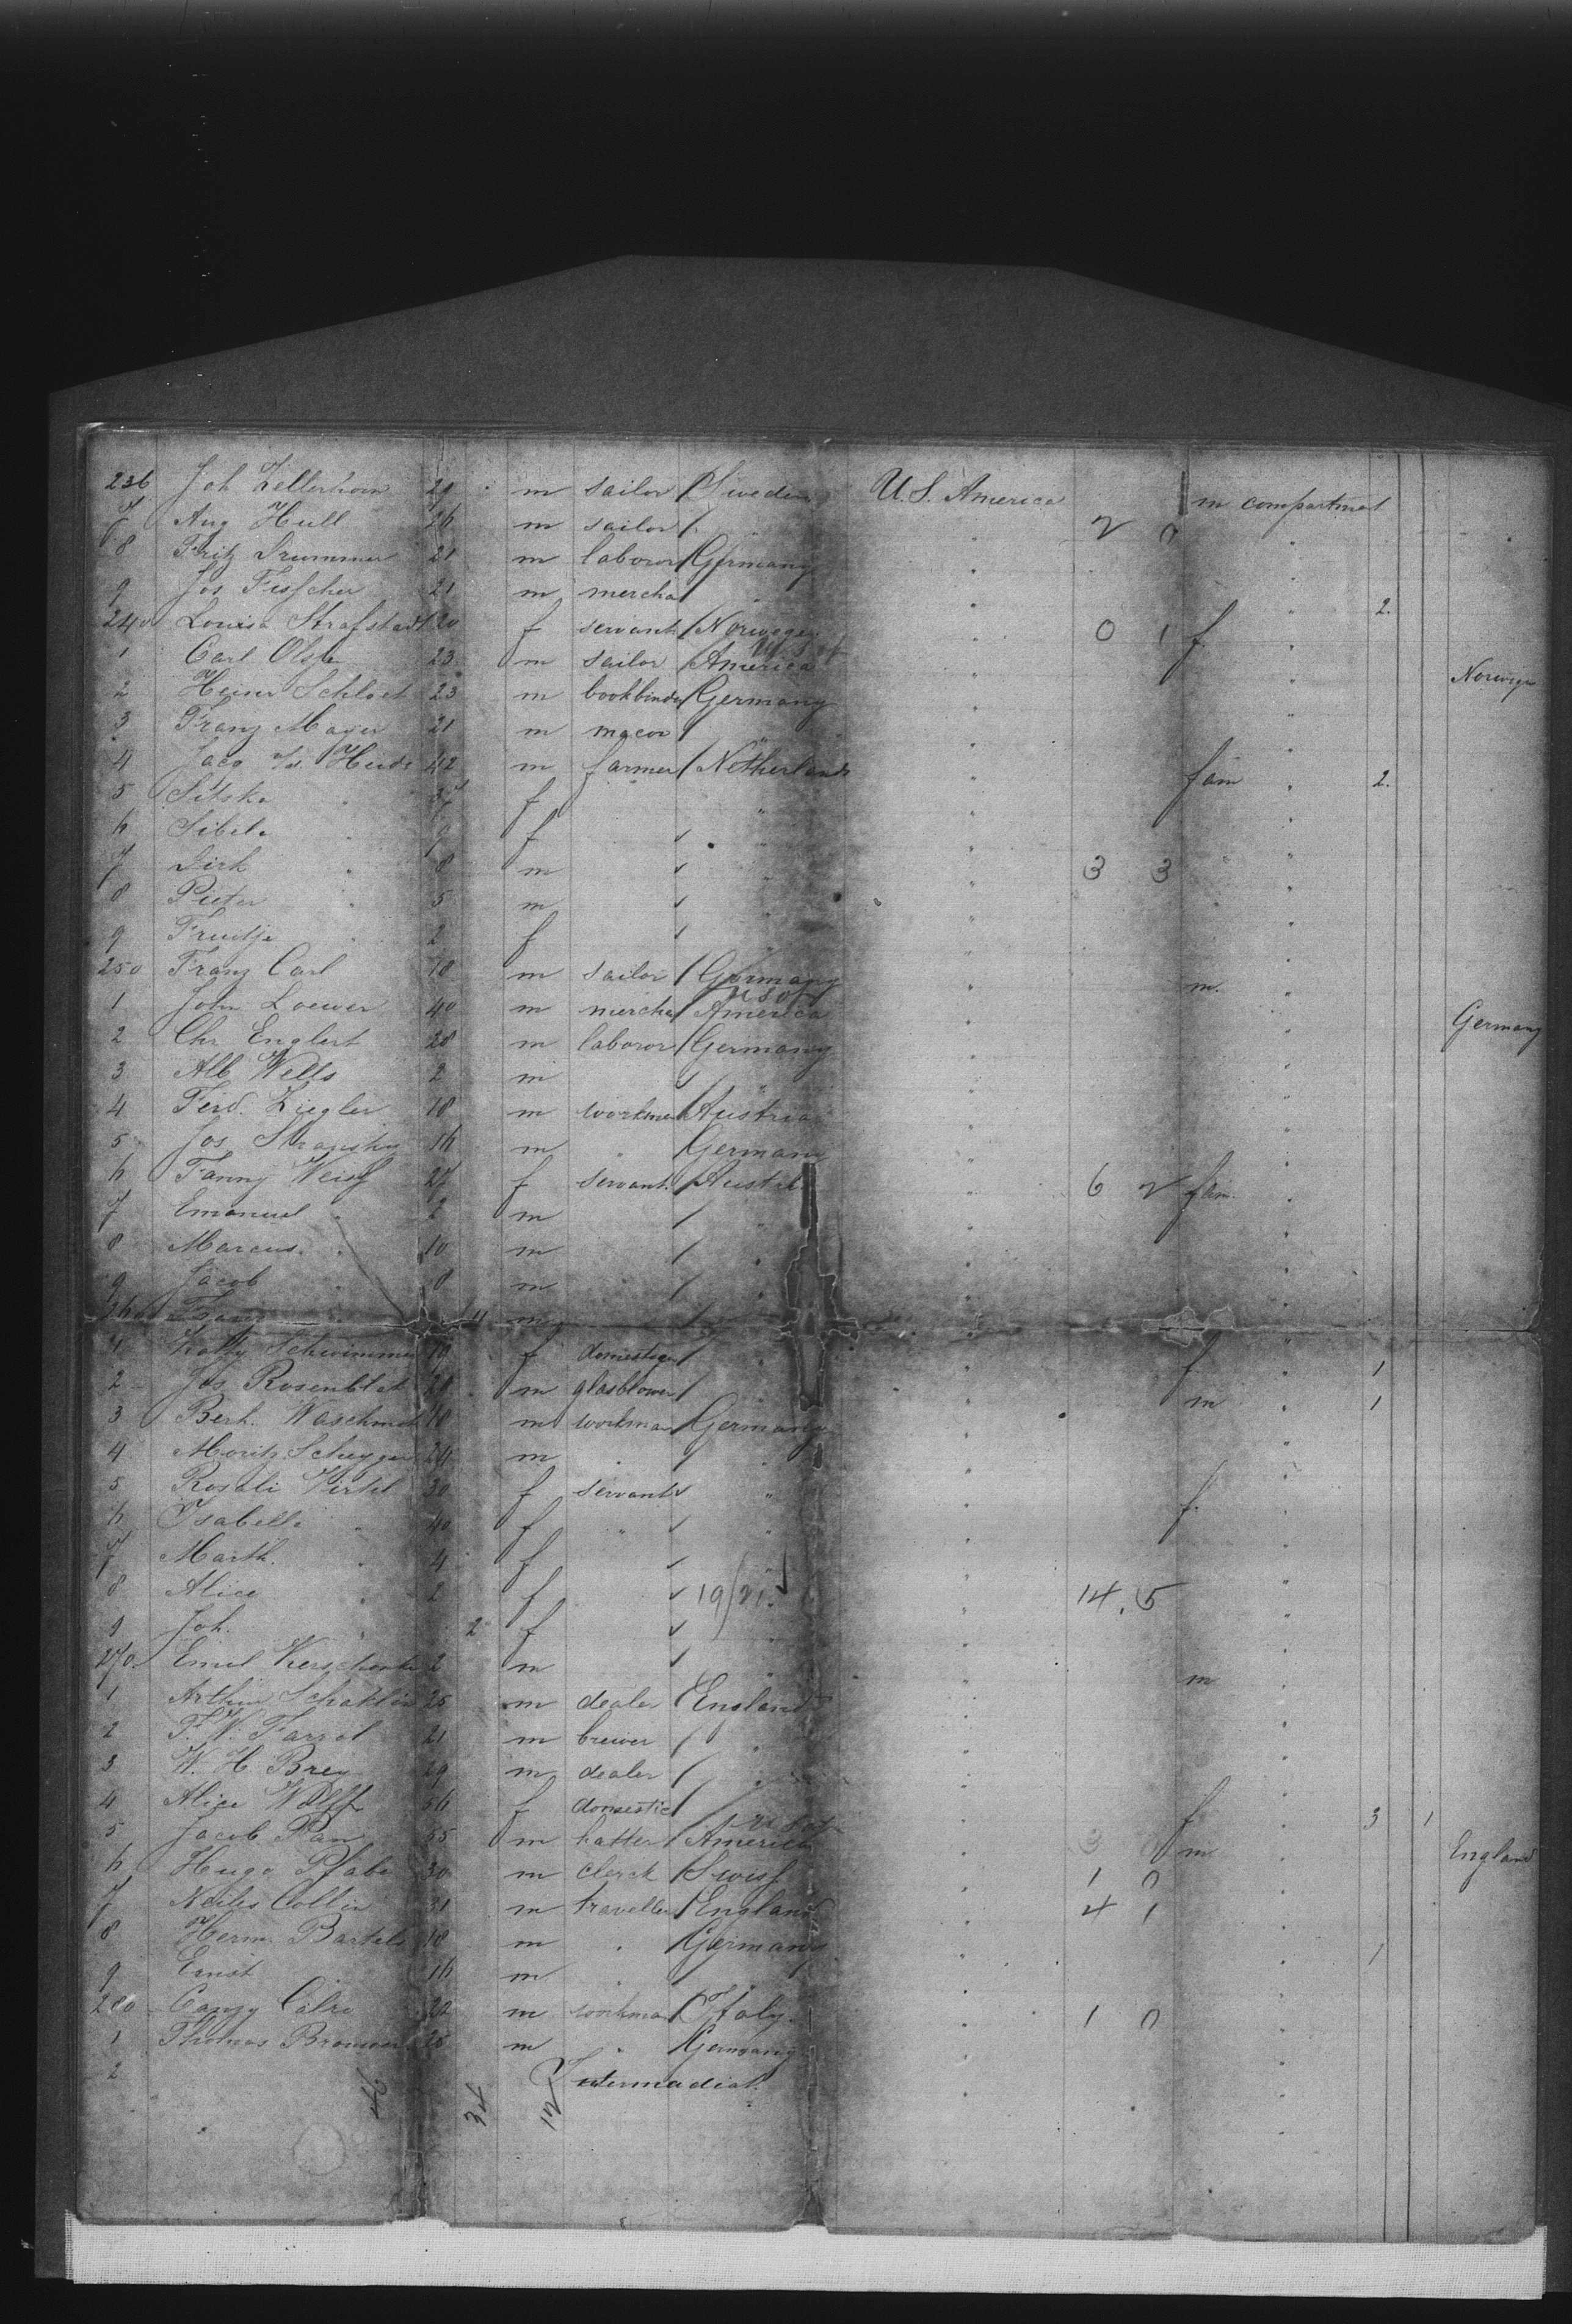 236 Joh Zellerhorn 29 m sailor Sweden U.S. America m compartment
7 Aug Hull 26 m sailor " " 2 0 "
8 Fritz Drummer 21 m laborer Germany " "
9 Jos Fischer 21 m mercha " " " 2.
240 Louisa Strafstadt 20 f servant Norwegen " 0 1 f "
1 Carl Olsse 23 m sailor U S of America " " Norwegen
2 Heinr Schloet 23 m bookbinder Germany " "
3 Franz Mayer 21 m macon " " "
4 Jacq 42 m farmer Netherlands " fam " 2.
5 Sitske " 37 f " " "
6 Sibele " 9 f " " "
7 Dirk " 8 m " " 3 3 "
8 Pieter " 5 m " " "
9 Fruitje " 2 f " " "
250 Franz Carl 18 m sailor Germany " m. "
1 John Loewer 40 m mercha U S of America " " Germany
2 Chr Englert 28 m laborer Germany " "
3 Alb Wells 2 m " " "
4 Ferd. Ziegler 18 m workman Austria " "
5 Jos. Stransky 16 m " Germany " "
6 Fanny Weiss 27 f servant Austri " 6 2 fam "
7 Emanuel " 2 m " " "
8 Marcus " 10 m " " "
9 Jacob " 8 m " " "
260 4 m " "
1 Kathy Schwimmer 19 f domestique " " f. " 1
2 Jos Rosenblat 29 m glasblower " m " 1
3 Berh. Waschmot 18 m workman Germany " "
4 Moritz 24 m " " " "
5 Rosali 30 f servant " " f. "
6 Isabella " 40 f " " " "
7 Marth. " 4 f " " "
8 Alice " 2 f 19/21 " 14. 5 "
9 Joh. " 2 f " " "
270 Emil 2 m " " m "
1 Arthur 25 m dealer England " "
2 F. W. Farrel 21 m brewer " " "
3 W. H. Brey 29 m dealer " " "
4 Alice Wolff 56 f domestic " " f " 3 1
5 Jacob Pan 55 m hatter U S of America " 3 0 m " England
6 Hugo Pfabe 30 m clerck Swiss " 1 0 "
7 Collin 31 m traveller England " 4 1 "
8 Herm. Bartels 18 m " Germany " " 1
9 Ernst " 16 m " " " "
280 22 m workman Italy " 1 0 "
1 Thomas 28 m " Germany " "
2 Intermediat.
46 34 12